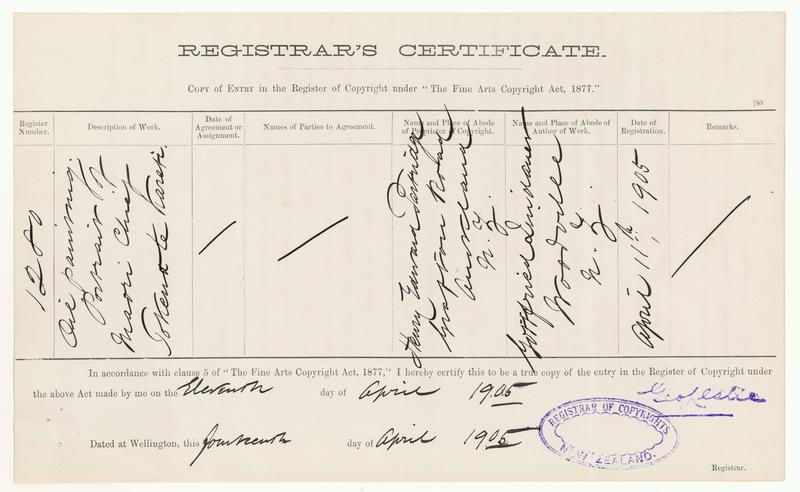 REGISTRAR'S CERTIFICATE.
COPY OF ENTRY in the Register of Copyright under "The Fine Arts Copyright Act, 1877."
[80
Register Number.
Description of Work.
Date of Agreement or Assignment.
Names of Parties to Agreement.
Name and Place of Abode of Proprietor of Copyright.
Name and Place of Abode of Author of Work.
Date of Registration.
Remarks.
1280
Oil painting.
Portrait of
Maori Chief
Henry Edward Partridge
Grafton Road
Auckland
N. Z.
Gottfried Lindauer
Woodville
N. Z.
April 11th, 1905
In accordance with clause 5 of "The Fine Arts Copyright Act, 1877," I hereby certify this to be a true copy of the entry in the Register of Copyright under
the above Act made by me on the Eleventh day of April 1905
Geo Leslie
Dated at Wellington, this fourteenth day of April 1905
REGISTRAR OF COPYRIGHTS
NEW ZEALAND.
Registrar.